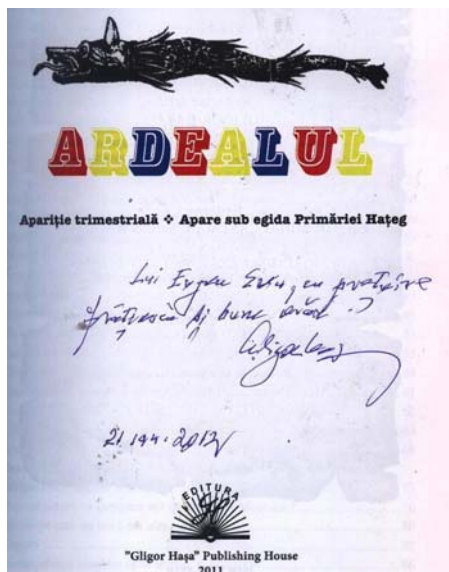 ARDEALUL
Apariție trimestrială ❖ Apare sub egida Primăriei Hațeg
Lui Eugen Evu, cu prețuire
frățească și bune urări
21 ian. 2012
EDITURA
"Gligor Hașa" Publishing House
2011